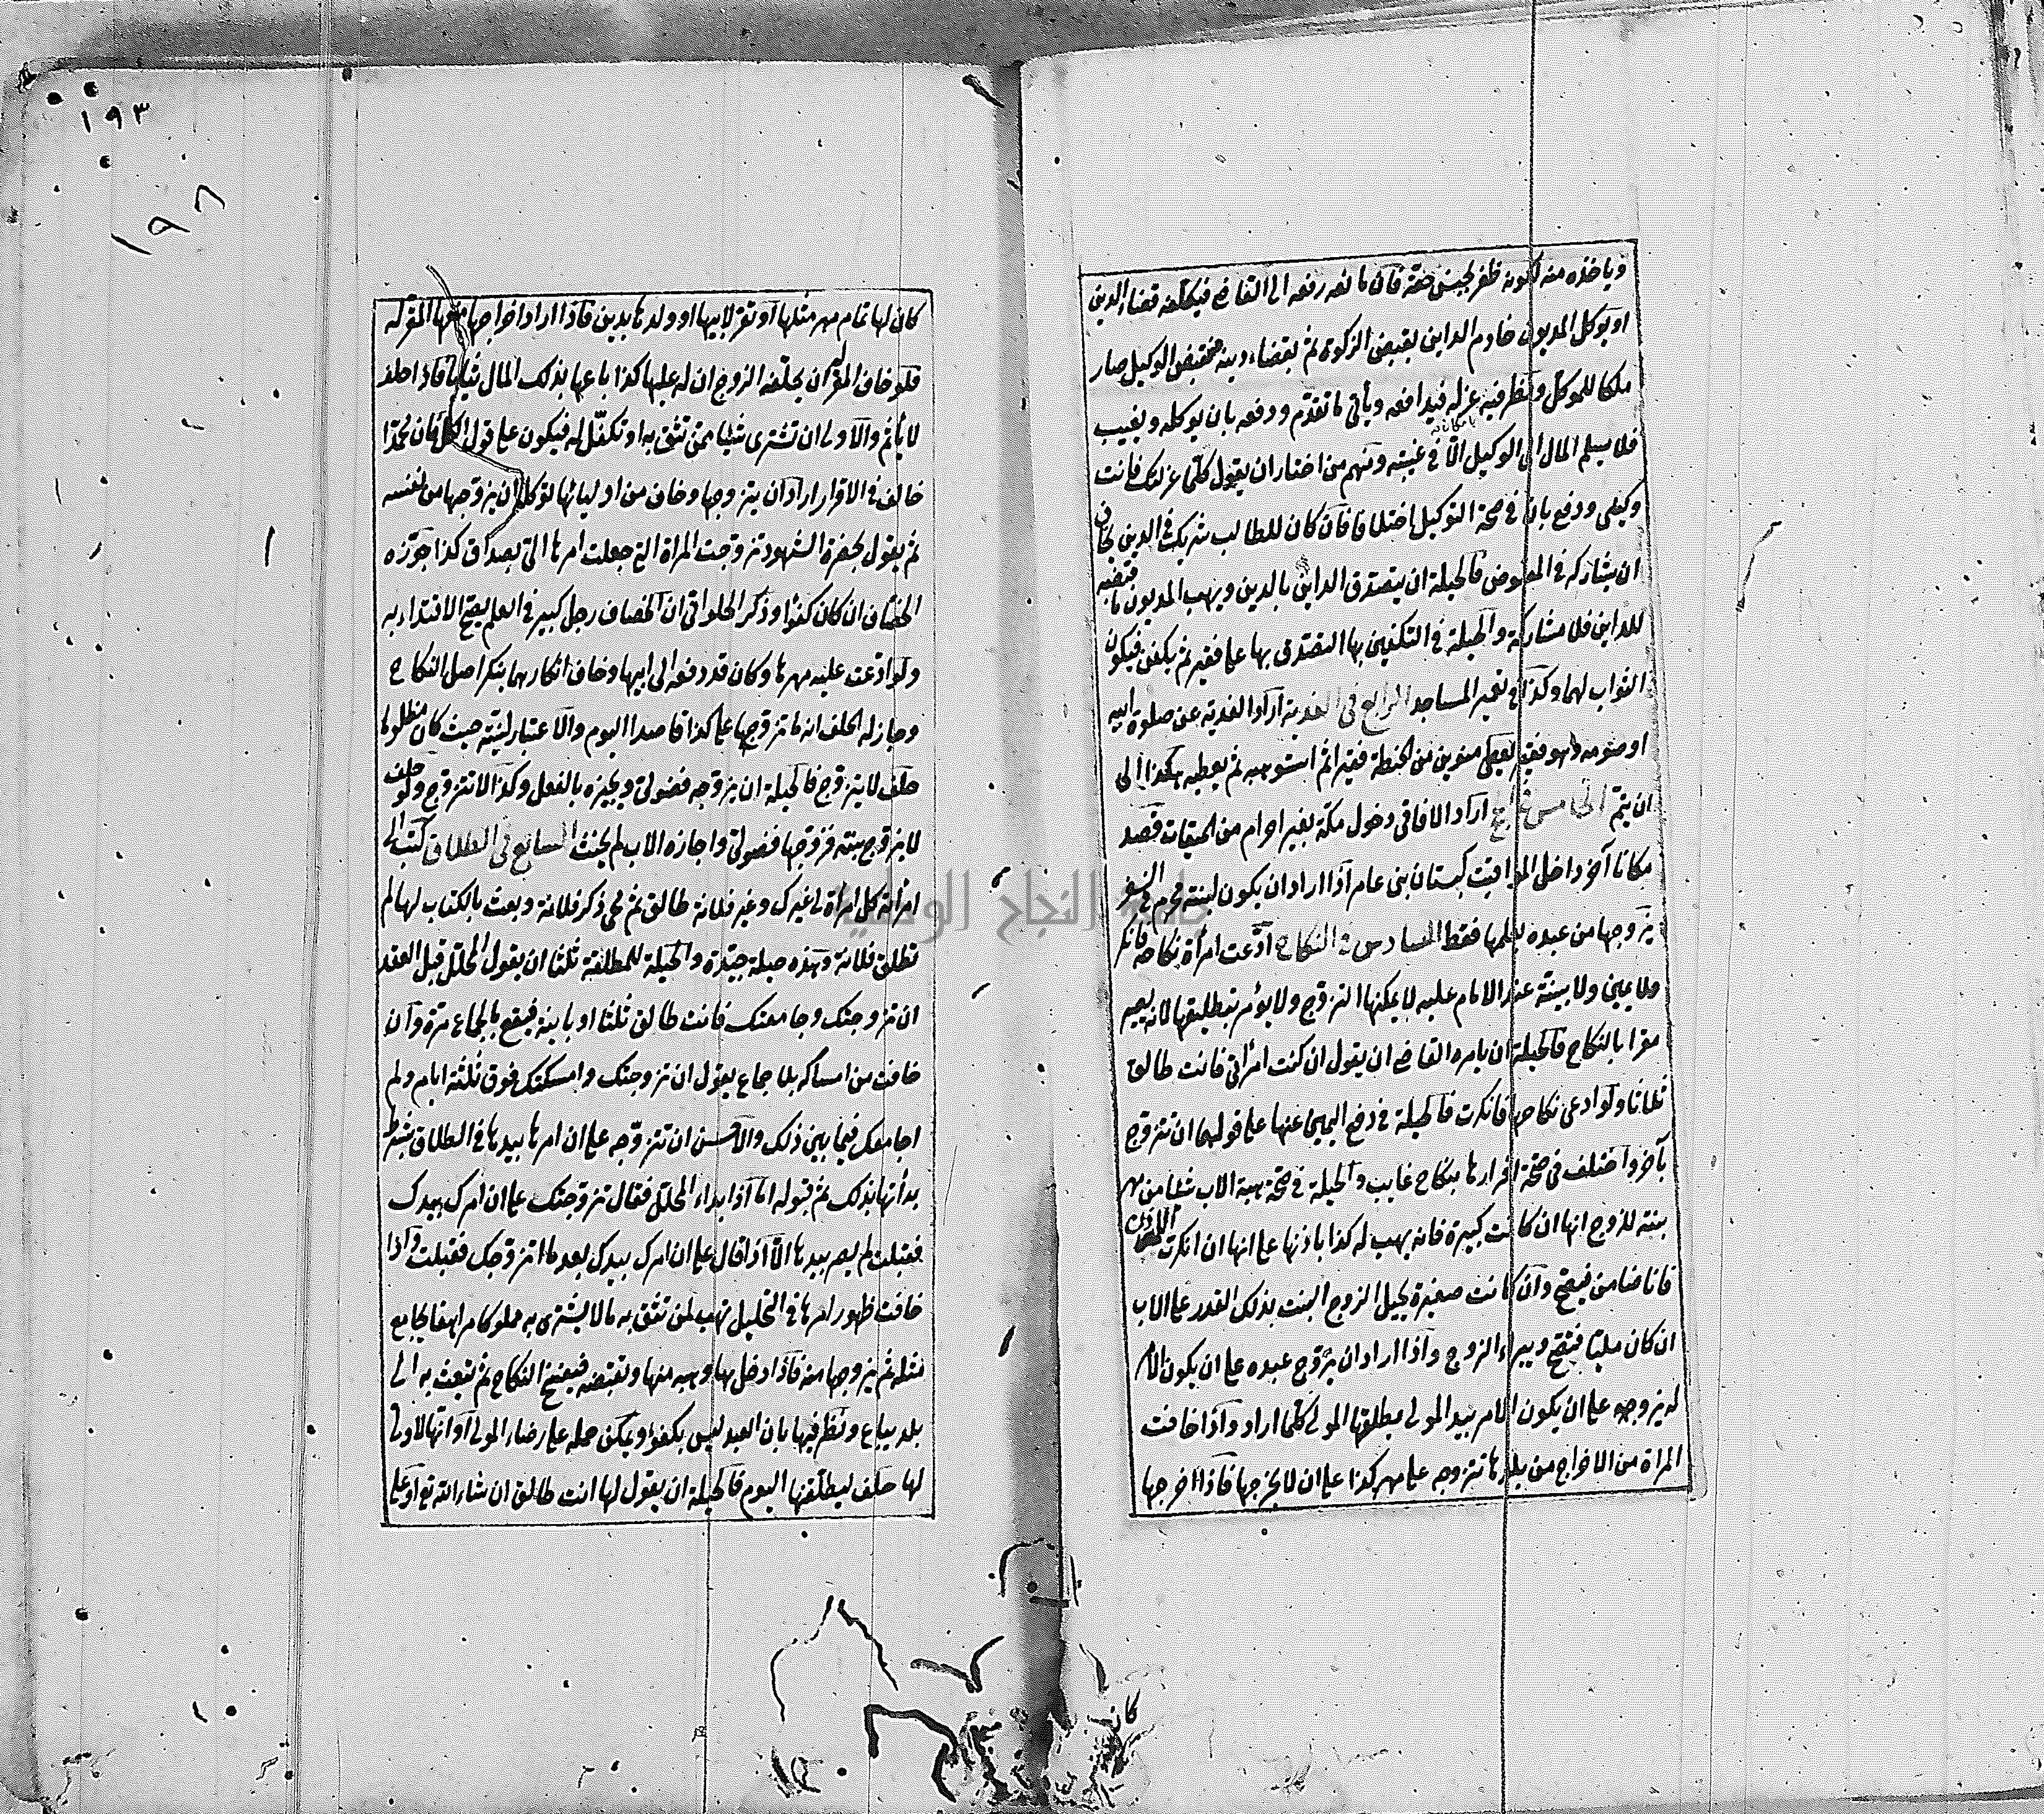 وياخذه منه لكونه ظفر بجنس حقه فان مانعه رفعه الى القاضي فيكلفه قضاء الدين
او يوكل المديون خادم الداين بقبض الزكوة ثم بقضاء دينه فبقبض الوكيل صار
ملكا للموكل ونظر فيه عزله فيدافعه ويأتى ما تقدم ودفعه بان يوكله ويغيب
فلا يسلم المال الى الوكيل الا في غيبته ومنهم من اختار ان يقول كلما عزلتك فانت
وكيلى ودفع بان في صحة التوكيل اختلافا فان كان للطالب شريك في الدين خاف
ان يشاركه في المقبوض فالحيلة ان يتصدق الداين بالدين ويهب المديون ما قبضه
للداين فلا مشاركة والحيلة في التكفين بها التصدق بها على فقير ثم يكفن فيكون
الثواب لهما وكذا في تعمير المساجد الرابع في الفدية اراد الفدية عن صلوة ابيه
او صومه وهو فقير يعطى منوين من الحنطة فقيرا ثم استوهبه ثم يعطيه هكذا الى
ان يتم الخامس في الحج اراد الافاقى دخول مكة بغير احرام من الميقات قصد
مكانا آخر داخل المواقيت كبستان بنى عامر اذا اراد ان يكون لبنته محرم في السفر
يزوجها من عبده بعلمها فقط السادس في النكاح ادعت امرأة نكاحه فانكر
ولا يمين ولا بينة عند الامام عليه لا يمكنها التزوج ولا يؤمر بتطليقها لانه يصير
مقرا بالنكاح فالحيلة ان يامره القاضي ان يقول ان كنت امرأتى فانت طالق
ثلاثا ولو ادعى نكاحها فانكرت فالحيلة في دفع اليمين عنها على قولهما ان تتزوج
بآخر واختلف في صحة اقرارها بنكاح غايب والحيلة في صحة هبة الاب شيئا من مهر
بنته للزوج انها ان كانت كبيرة فانه يهب له كذا باذنها على انها ان انكرت الاذن
فانا ضامن فيصح وان كانت صغيرة يحيل الزوج البنت بذلك القدر على الاب
ان كان مليا فيصح ويبراء الزوج واذا اراد ان يزوج عبده على ان يكون الامر
له يزوجه على ان يكون الامر بيد المولى يطلقها المولى كلما اراد واذا خافت
المراة من الاخراج من بلدها تتزوجه على مهر كذا على ان لا يخرجها فاذا اخرجها
كان
١٩٣
١٩٨
كان لها تمام مهر مثلها او تقر لابيها او ولدها بدين فاذا اراد اخراجها منعها المقر له
فلو خاف المقر له ان يحلفه الزوج ان له عليها كذا باعها بذلك المال ثيابا فاذا حلف
لا يأثم والاولى ان تشترى شيئا ممن تثق به او تكفل له فيكون على قول الكل فان محمدا
خالف في الاقرار اراد ان يتزوجها وخاف من اوليائها توكله ان يزوجها من نفسه
ثم يقول بحضرة الشهود تزوجت المراة التي جعلت امرها الى بصداق كذا جوزه
الخصاف ان كان كفؤا وذكر الحلوانى ان الخصاف رجل كبير في العلم يصح الاقتداء به
ولو ادعت عليه مهرها وكان قد دفعه الى ابيها وخاف انكارهما ينكر اصل النكاح
وجاز له الحلف انه ما تزوجها على كذا قاصدا اليوم والاعتبار لنيته حيث كان مظلوما
حلف لا يتزوج فالحيلة ان يزوجه فضولى ويجيزه بالفعل وكذا لا تتزوج ولو حلف
لا يزوج بنته فزوجها فضولى واجازه الاب لم يحنث السابع في الطلاق كتب الى
امرأته كل امرأة لى غيرك وغير فلانة طالق ثم محى ذكر فلانة وبعث بالكتاب لها لم
تطلق فلانة وهذه حيلة جيدة والحيلة للمطلقة ثلثا ان يقول المحلل قبل العقد
ان تزوجتك وجامعتك فانت طالق ثلثا او باينة فيقع بالجماع مرة وان
خافت من امساكه بلا جماع يقول ان تزوجتك وامسكتك فوق ثلثة ايام ولم
اجامعك فيما بين ذلك والاحسن ان تتزوجه على ان امرها بيدها في الطلاق بشرط
بدأتها بذلك ثم قبوله اما اذا بداء المحلل فقال تزوجتك على ان امرك بيدك
فقبلت لم يصر بيدها الا اذا قال على ان امرك بيدك بعد ما اتزوجك فقبلت واذا
خافت ظهور امرها في التحليل تهب لمن تثق به مالا يشترى به مملوكا مراهقا يجامع
مثله ثم يزوجها منه فاذا دخل بها وهبه منها وتقبضه فيفسخ النكاح ثم تبعث به الى
بلد يباع ونظر فيها بان العبد ليس بكفؤ ويمكن حمله على رضاء المولى او انها لا ولى
لها حلف ليطلقنها اليوم فالحيلة ان يقول لها انت طالق ان شاء الله تع او على
جامعة النجاح الوطنية